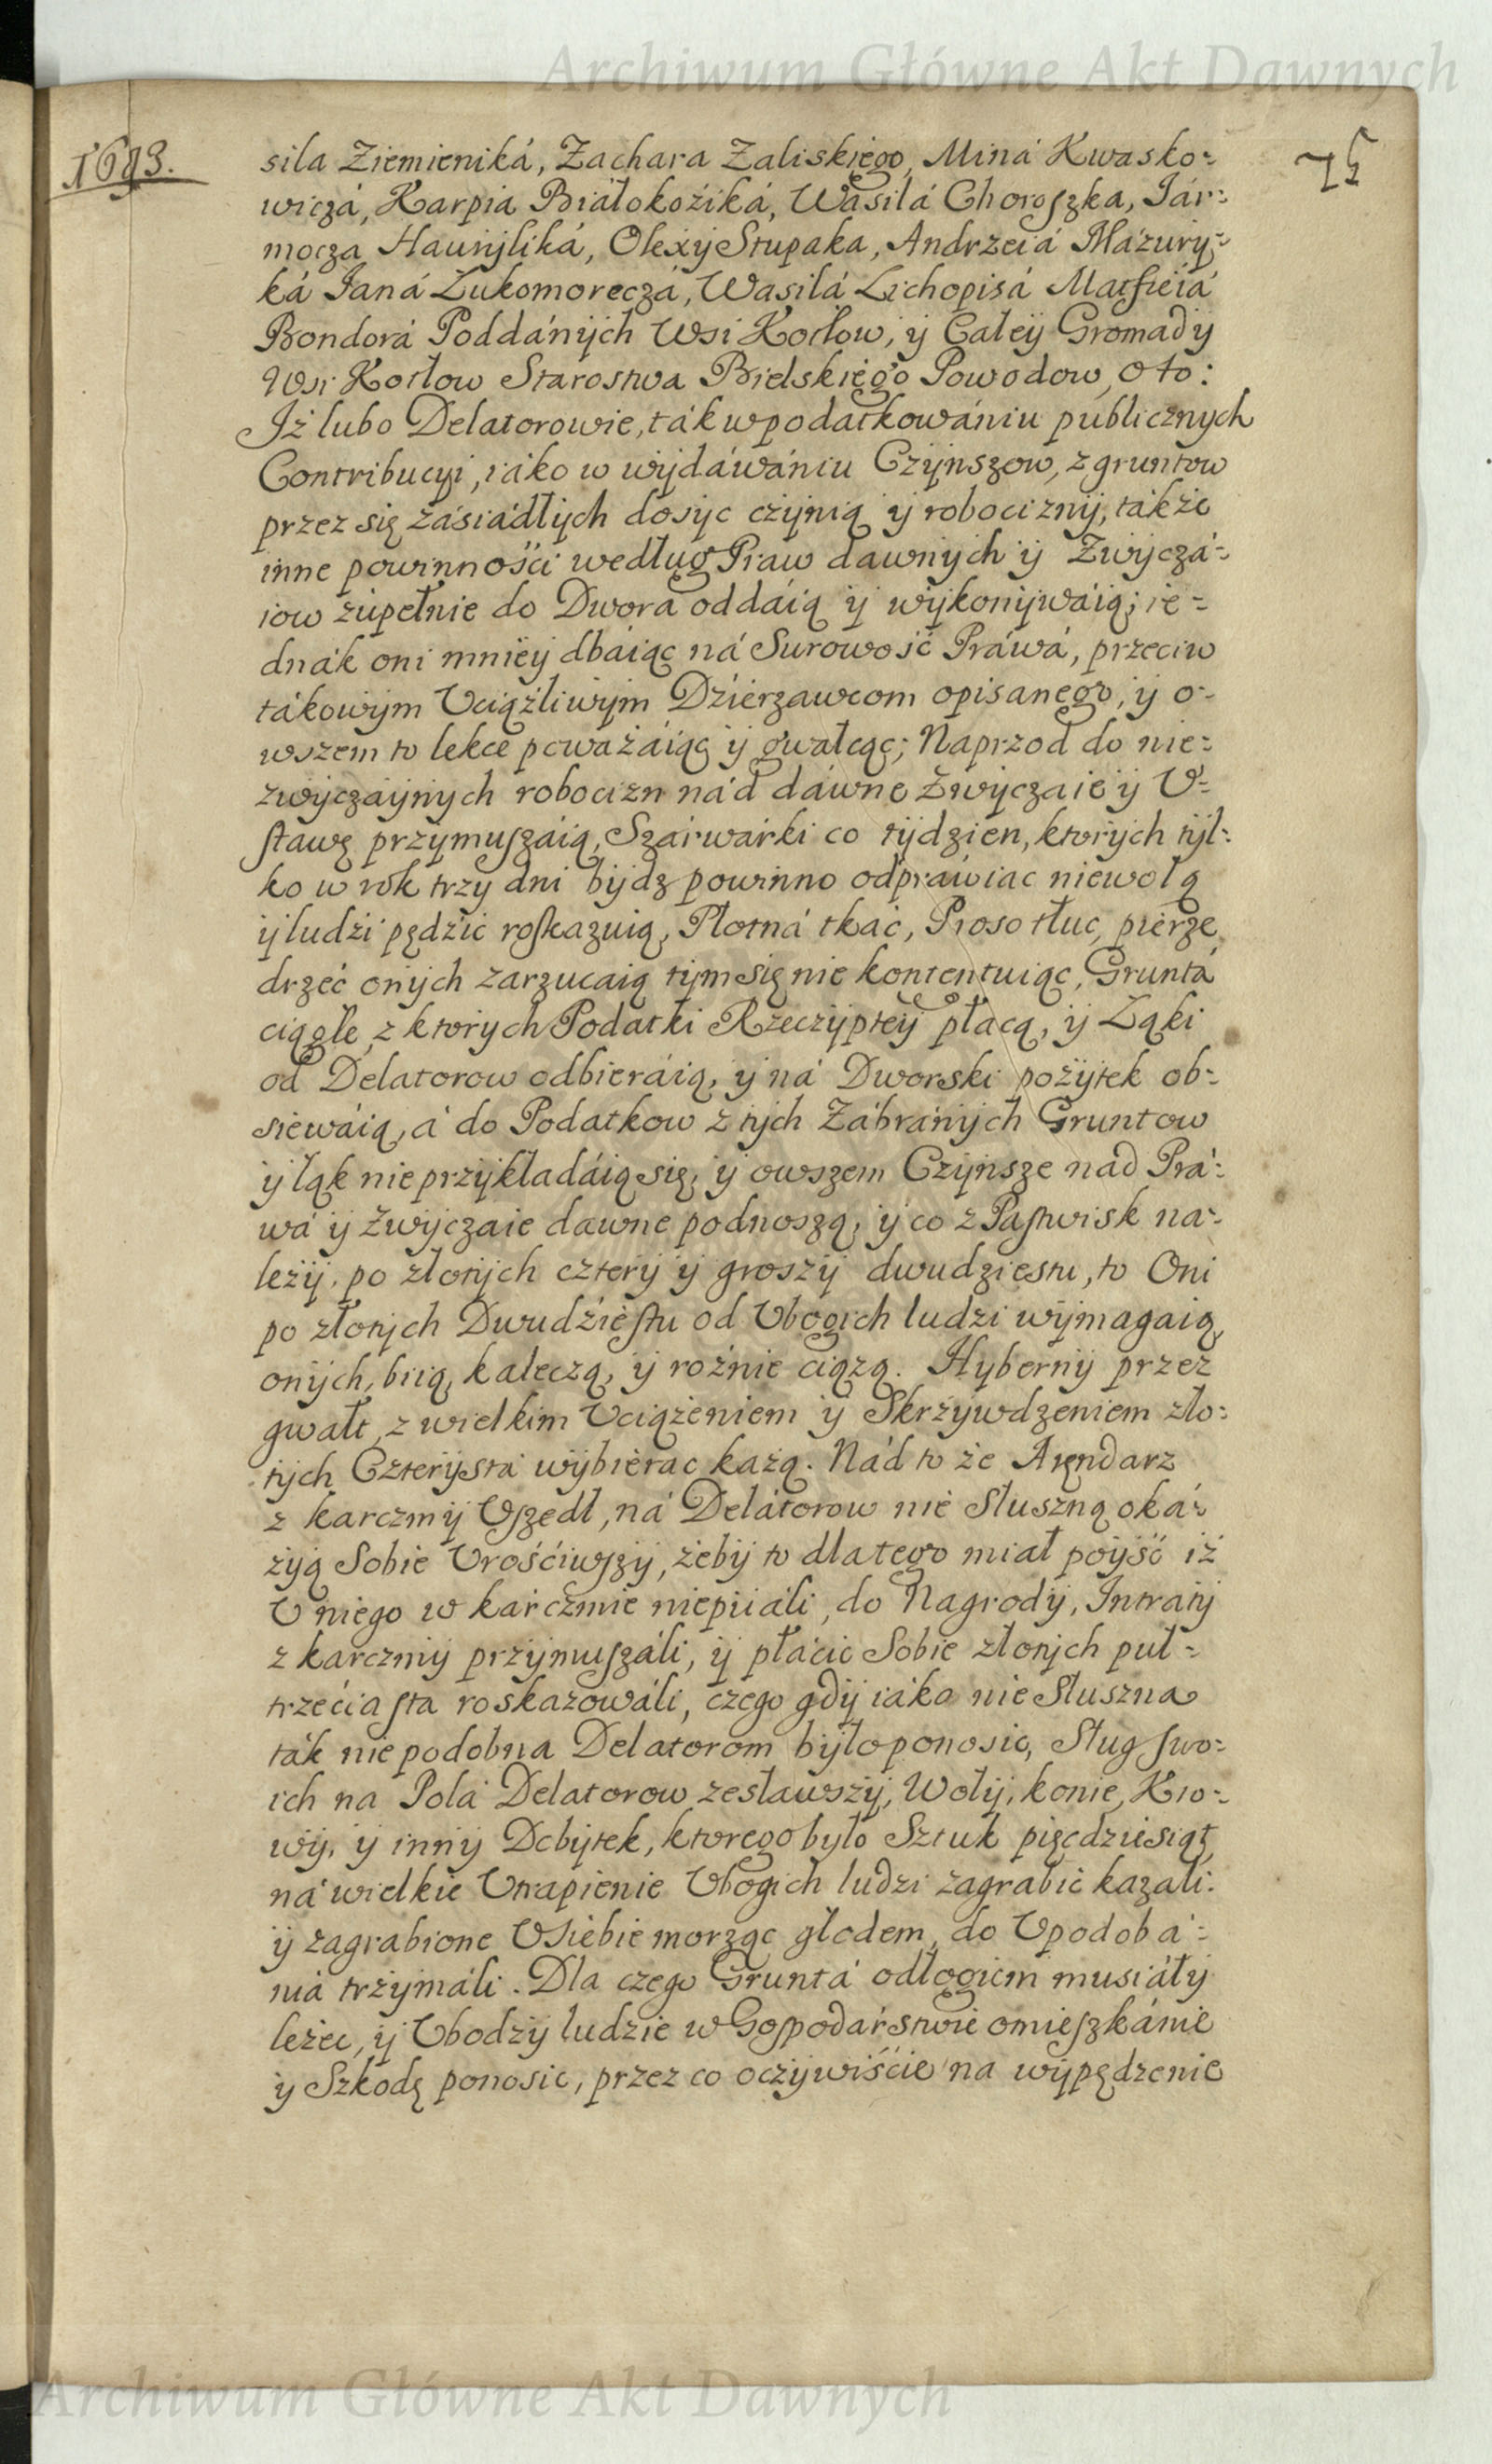 Archiwum Główne Akt Dawnych
1693.
75
sila Ziemieniká, Zachara Zaliskiego, Miná Kwasko=
wiczá, Karpia Białokoźiká, Wasilá Choroszka, Iár=
mocza Hawryliká, Olexy Stupaka, Andrzeiá Mázury=
ká Janá Łukomoreczá, Wasilá Lichopisá Matfieiá
Bondorá Poddánÿch Wsi Korłow, ÿ Całeÿ Gromadÿ
Wsi Korłow Starostwa Bielskiego Powodow, o to:
Iż lubo Delatorowie, ták w podatkowániu publicznych
Contribucÿi, iáko w wÿdáwániu Czÿnszow, z gruntow
przez się zásiádłÿch dosÿc czÿnią ÿ robociznÿ, tákże
inne powinnośći według Praw dawnÿch ÿ Zwÿczá=
iow zupełnie do Dwora oddáią ÿ wÿkonÿwáią; ie=
dnák oni mnieÿ dbáiąc ná Surowość Práwá, przeciw
tákowÿm Vciążliwÿm Dźierzawcom opisanego, ÿ o=
wszem to lekce poważáiąc ÿ gwałcąc; Naprzod do nie=
zwÿczaÿnÿch robocizn nád dáwne Zwÿczaie ÿ V=
stawę przÿmuszáią, Szárwárki co tÿdzien, ktorÿch tÿl=
ko w rok trzy dni bÿdz powinno odpráwiac niewolą
ÿ ludzi pędźić roskazuią, Płotná tkáć, Proso tłuc, pierze
drzeć onÿch zarzucaią tÿm się nie kontentuiąc, Gruntá
ciągłe, z ktorych Podatki Rzeczÿpteÿ płacą, ÿ Łąki
od Delatorow odbieráią, ÿ ná Dworski pożÿtek ob=
siewáią, á do Podatkow z tÿch Zábránÿch Gruntow
ÿ łąk nie przÿkładáią się, ÿ owszem Czÿnsze nad Prá=
wá ÿ zwÿczaie dawne podnoszą, ÿ co z Pastwisk na=
leżÿ, po złotÿch czterÿ ÿ groszÿ dwudziestu, to Oni
po złotÿch Dwudźiestu od Vbogich ludzi wÿmagaią,
onÿch, biią, kaleczą, ÿ rożnie ciążą. Hÿbernÿ przez
gwałt, z wielkim Vciążeniem ÿ Skrzÿwdzeniem zło=
tÿch Czterÿsta wÿbierac każą. Nád to że Arędarz
z karczmÿ Vszedł, ná Delátorow nie Słuszną oká=
zÿą Sobie Vrośćiwszÿ, żebÿ to dlatego miał poÿść iż
V niego w karczmie niepiiáli, do Nagrodÿ, Intratÿ
z karczmÿ przÿmuszáli, ÿ płácić Sobie złotÿch puł=
trzećia sta roskazowáli, czego gdÿ iáko nie Słuszna
ták nie podobna Delatorom bÿło ponosic, Sług swo=
ich na Polá Delatorow zesławszÿ, Wołÿ, konie, Kro=
wÿ, ÿ innÿ Dobÿtek, ktorego było Sztuk pięcdziesiąt,
ná wielkie Vtrapienie Vbogich ludzi zagrabić kazáli.
ÿ zagrabione V siebie morząc głodem, do Vpodobá=
niá trzÿmáli. Dla czego Gruntá odłogiem musiáłÿ
leżec, ÿ Vbodzÿ ludzie w Gospodárstwie omieszkánie
ÿ Szkodę ponosic, przez co oczÿwiśćie na wÿpędzenie
Archiwum Główne Akt Dawnych